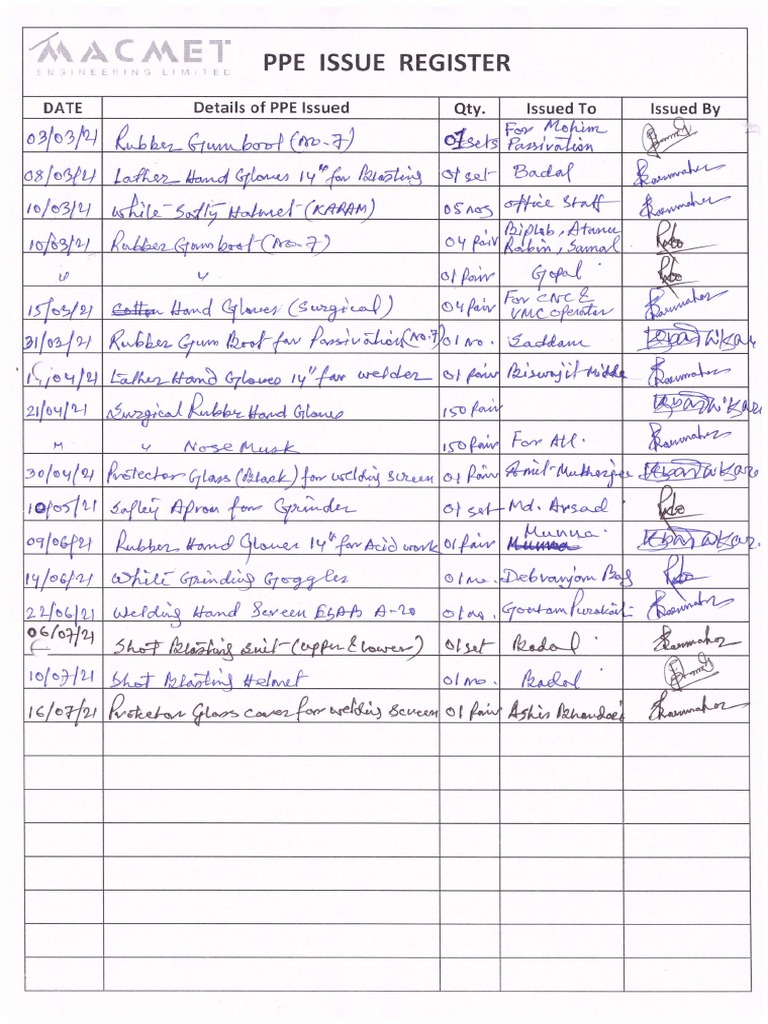 MACMET
ENGINEERING LIMITED
PPE ISSUE REGISTER
DATE Details of PPE Issued Qty. Issued To Issued By
03/03/21 Rubber Gumboot (No-7) 01 sets For Mohim Passivation
08/03/21 Lather Hand Gloves 14" for Blasting 01 set Badal Karmakar
10/03/21 White Safty Halmet (KARAM) 05 nos office Staff Karmakar
10/03/21 Rubber Gumboot (No-7) 04 Pair Biplab, Atanu Robin, Samal
" " 01 Pair Gopal
15/03/21 Hand Gloves (Surgical) 04 Pair For CNC & VMC operator Karmakar
31/03/21 Rubber Gum Boot for Passivation (No.7) 01 no. Saddam
/04/21 Lather Hand Gloves 14" for welder 01 Pair Biswajit Midde Karmakar
21/04/21 Surgical Rubber Hand Gloves 150 Pair
" " Nose Musk 150 Pair For All. Karmakar
30/04/21 Protector Glass (Black) for welding screen 01 Pair Amit Mukherjee
10/05/21 Safley Apron for Grinder 01 set Md. Arsad
09/06/21 Rubber Hand Gloves 14" for Acid work 01 Pair Munna.
14/06/21 White Grinding Goggles 01 no. Debranjan Bag
22/06/21 Welding Hand Screen ESAB A-20 01 no. Goutam Purakait Karmakar
06/07/21 Shot Blasting Suit (upper & lower) 01 set Badal Karmakar
10/07/21 Shot Blasting Helmet 01 no. Badal
16/07/21 Protector Glass cover for welding screen 01 Pair Ashis Bhandari Karmakar